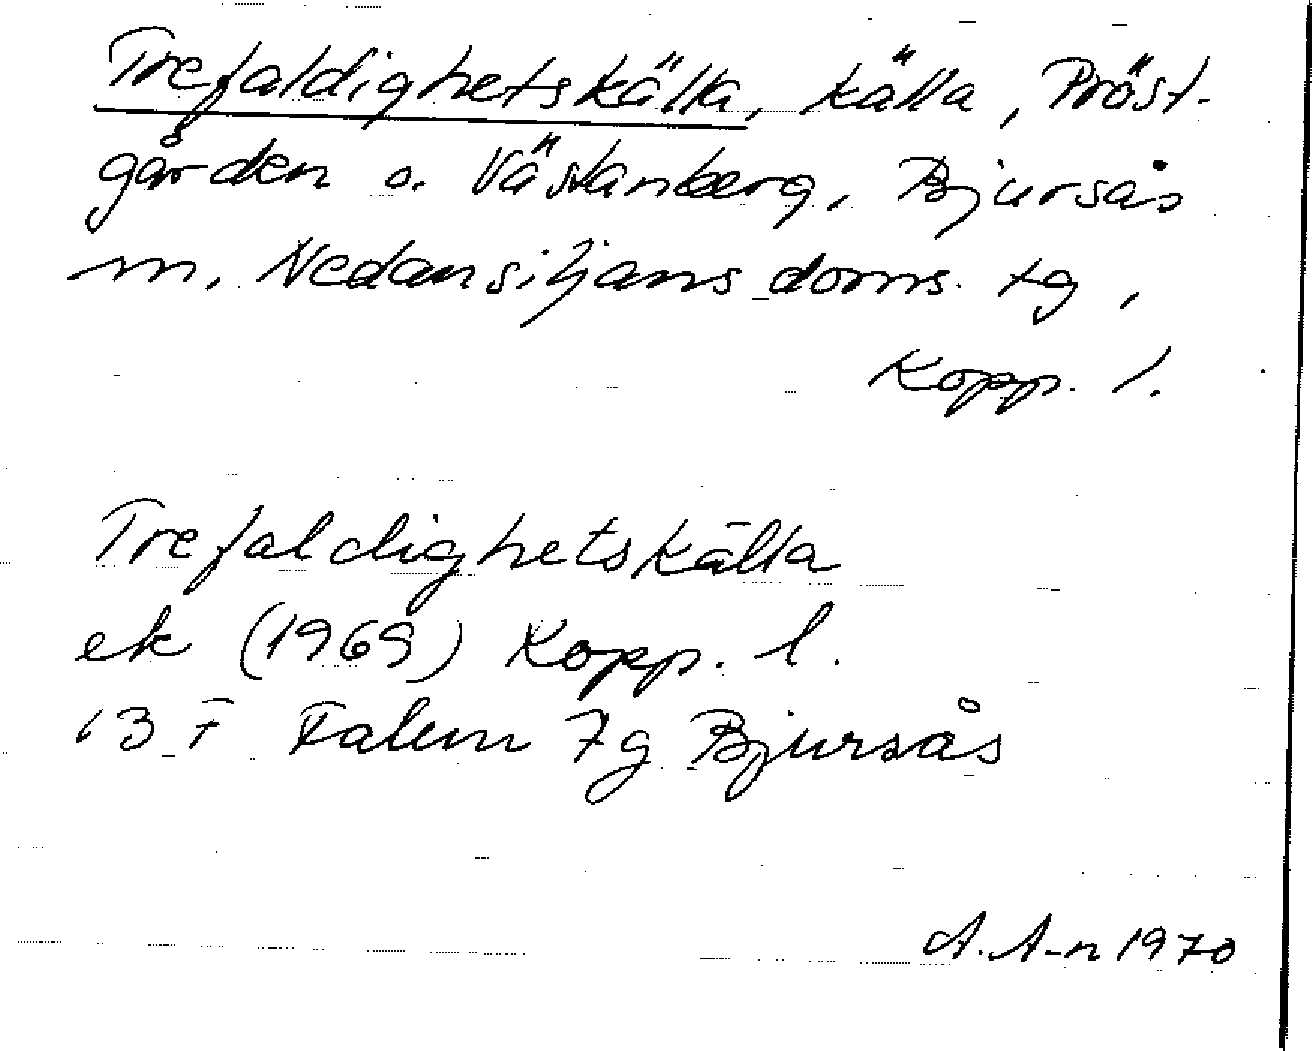 Trefaldighetskälla, källa, Pröst-
gården o. Västanberg, Bjursås
sn, Nedansiljans doms. tg,
Kopp. l.
Trefaldighetskälla
ek (1969) Kopp. l.
13 F Falun 7g Bjursås
A. A-n 1970